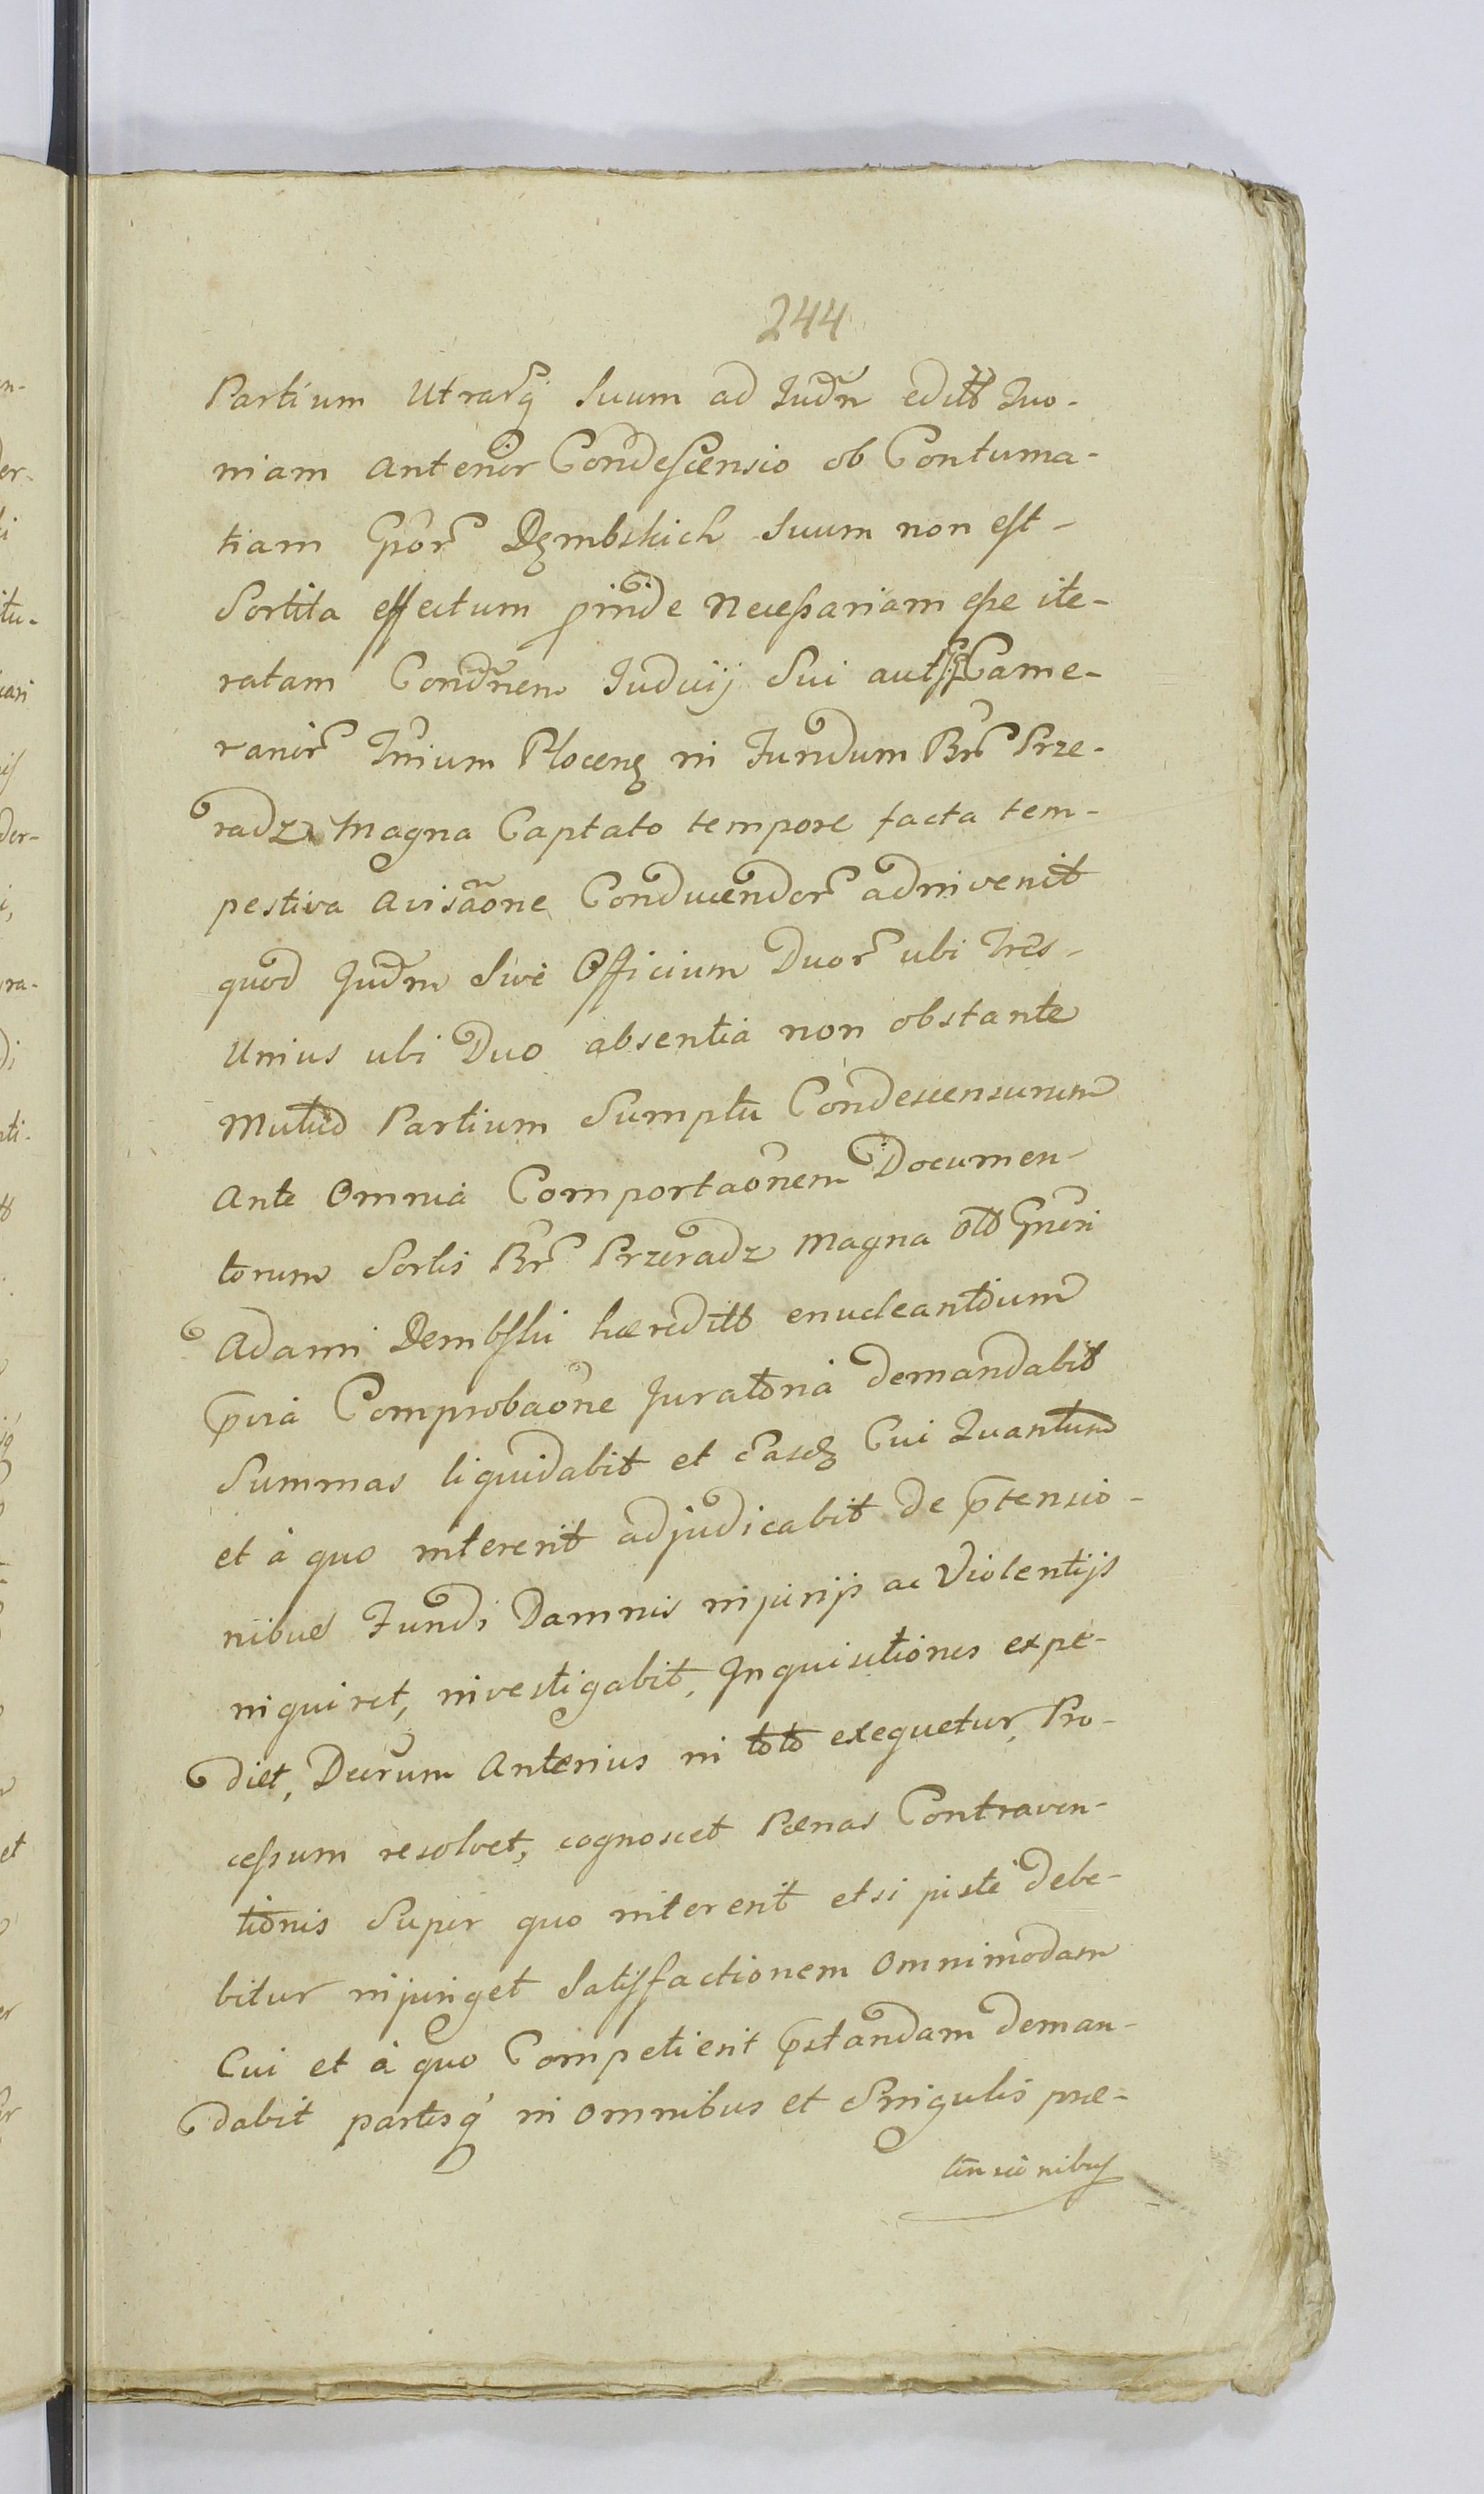 244
Partium Utrarq̃ Suum ad Judm̃ editt Quo-
niam anterior Condescensio ob Contuma-
tiam Gñor̃ Dęmbskich Suum non est
Sortita effectum proinde necessariam esse ite-
ratam Condñem Judicij Sui aut Came-
rarior̃ Trium Plocens in Fundum Bñr̃ Prze-
radz Magna Captato tempore facta tem-
pestiva avisãone Conducendor̃ adinvenit
quod Judm̃ sive Officium Duor̃ ubi Tres
Unius ubi Duo absentia non obstante
Mutuo Partium Sumptu Condescensurum
Ante Omnia Comportãonem Documen-
torum Sortis Bñr̃ Przeradz Magna olt Gñeri
Adami Dembski hæreditt enucleantium
p̃via Comprobãone Juratoria demandabit
Summas liquidabit et easdz Cui Quantum
et à quo intererit adjudicabit de p̃tensio-
nibus Fundi Damnis injurijs ac Violentijs
inquiret, investigabit, Inquisitiones expe-
diet, Decrum Anterius in toto exequetur, Pro-
cessum resolvet, cognoscet Pænas Contraven-
tionis Super quo intererit et si juste debe-
bitur injunget Satisfactionem Omnimodam
Cui et à quo Competierit p̃standam deman-
dabit partesq́ in Omnibus et Singulis præ-
tensionibus